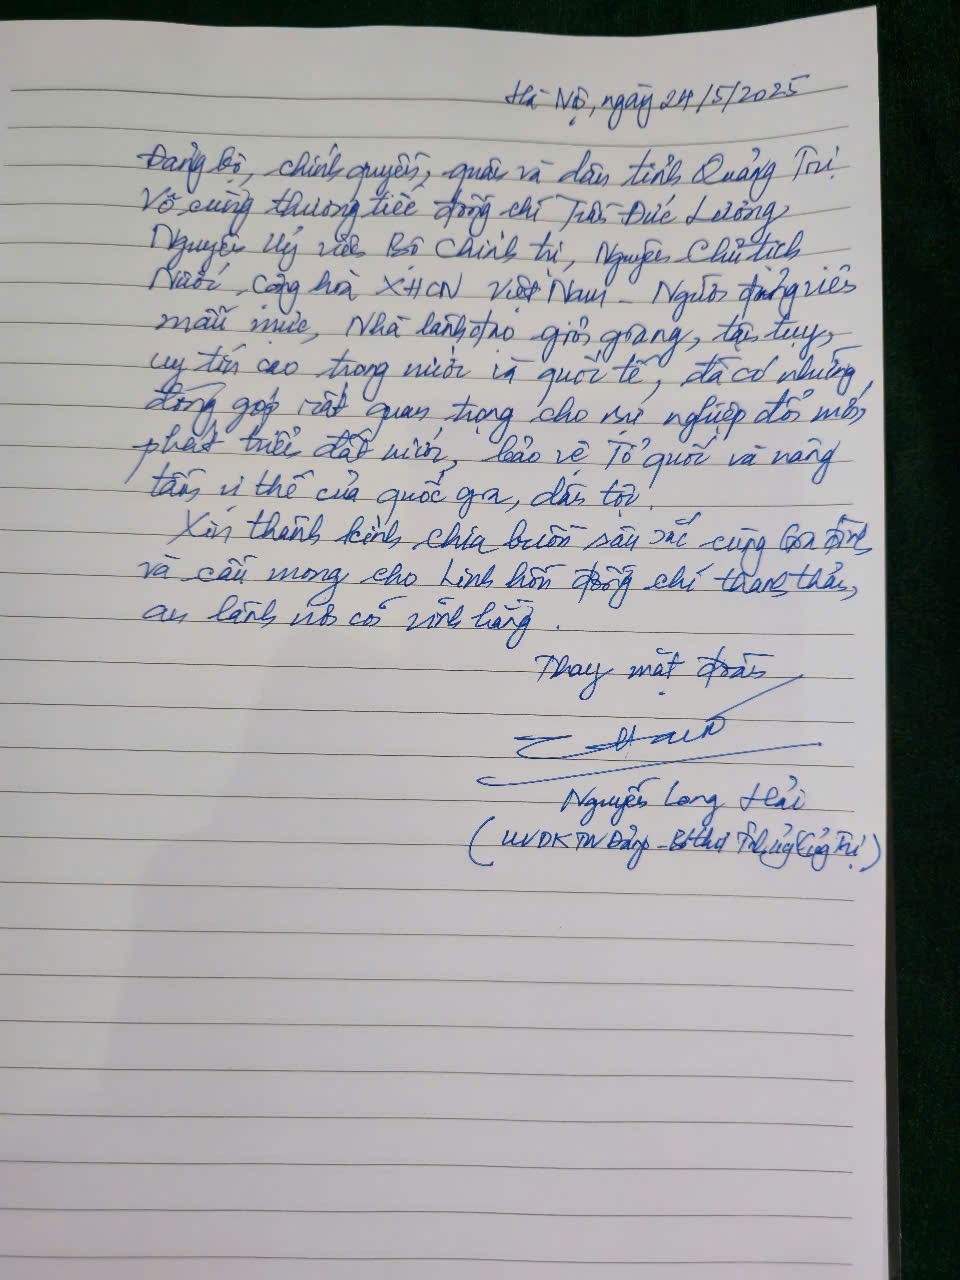 Hà Nội, ngày 24/5/2025
Đảng bộ, chính quyền, quân và dân tỉnh Quảng Trị
Vô cùng thương tiếc đồng chí Trần Đức Lương,
Nguyên Uỷ viên Bộ Chính trị, Nguyên Chủ tịch
Nước, Cộng hoà XHCN Việt Nam - Người đảng viên
mẫu mực, Nhà lãnh đạo giỏi giang, tận tụy,
uy tín cao trong nước và quốc tế, đã có những
đóng góp rất quan trọng cho sự nghiệp đổi mới
phát triển đất nước, bảo vệ Tổ quốc và nâng
tầm vị thế của quốc gia, dân tộc!
Xin thành kính chia buồn sâu sắc cùng Gia đình
và cầu mong cho Linh hồn đồng chí thanh thản,
an lành nơi cõi vĩnh hằng.
Thay mặt đoàn
Nguyễn Long Hải
(UVDKTW Đảng - Bí thư Tỉnh ủy Quảng Trị)